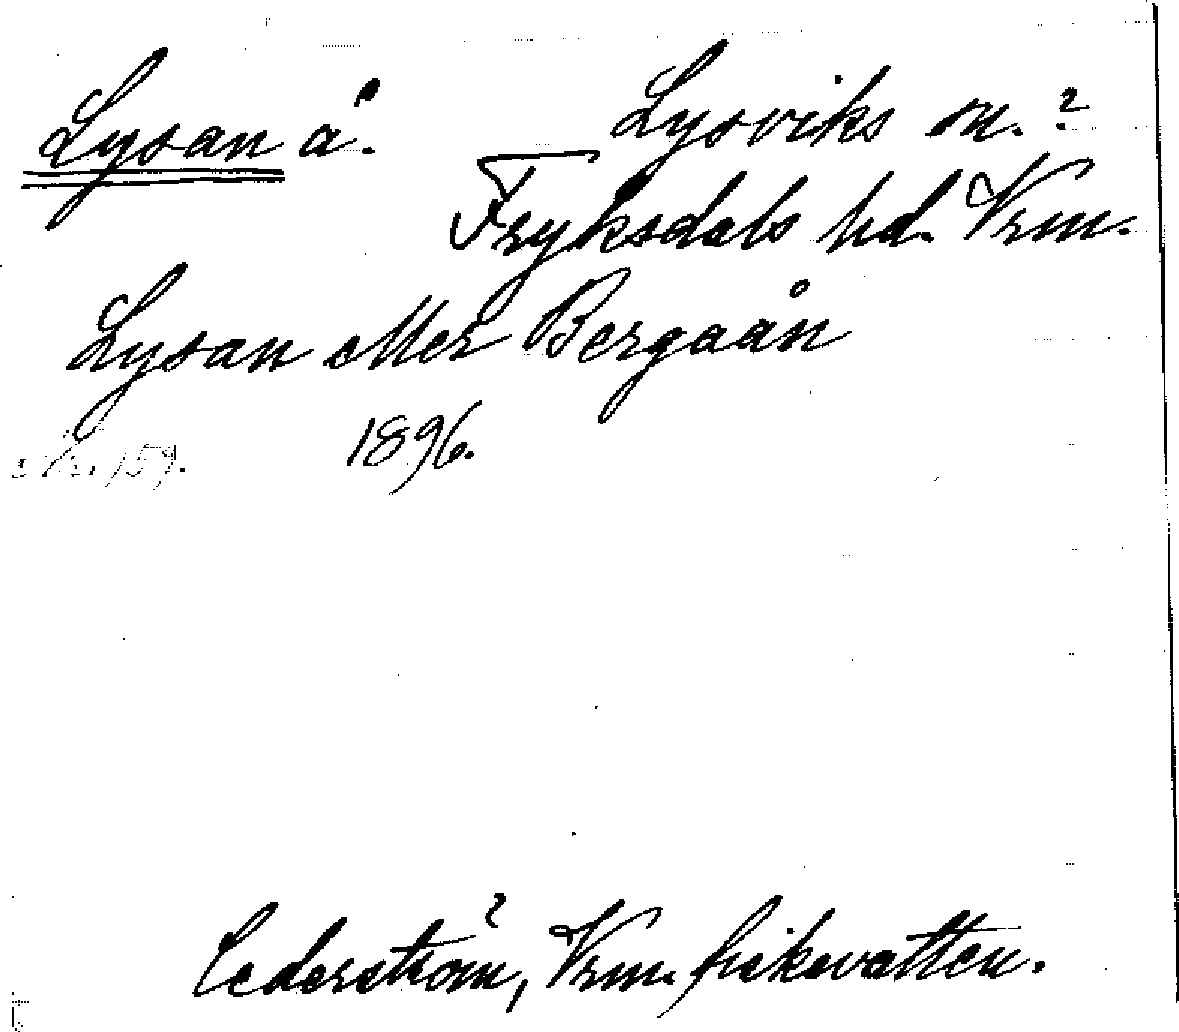 Lysan å. Lysviks sn.?
Fryksdals hd. Vrm.
Lysan eller Bergaån
1896.
Cederström, Vrm. fiskevatten.